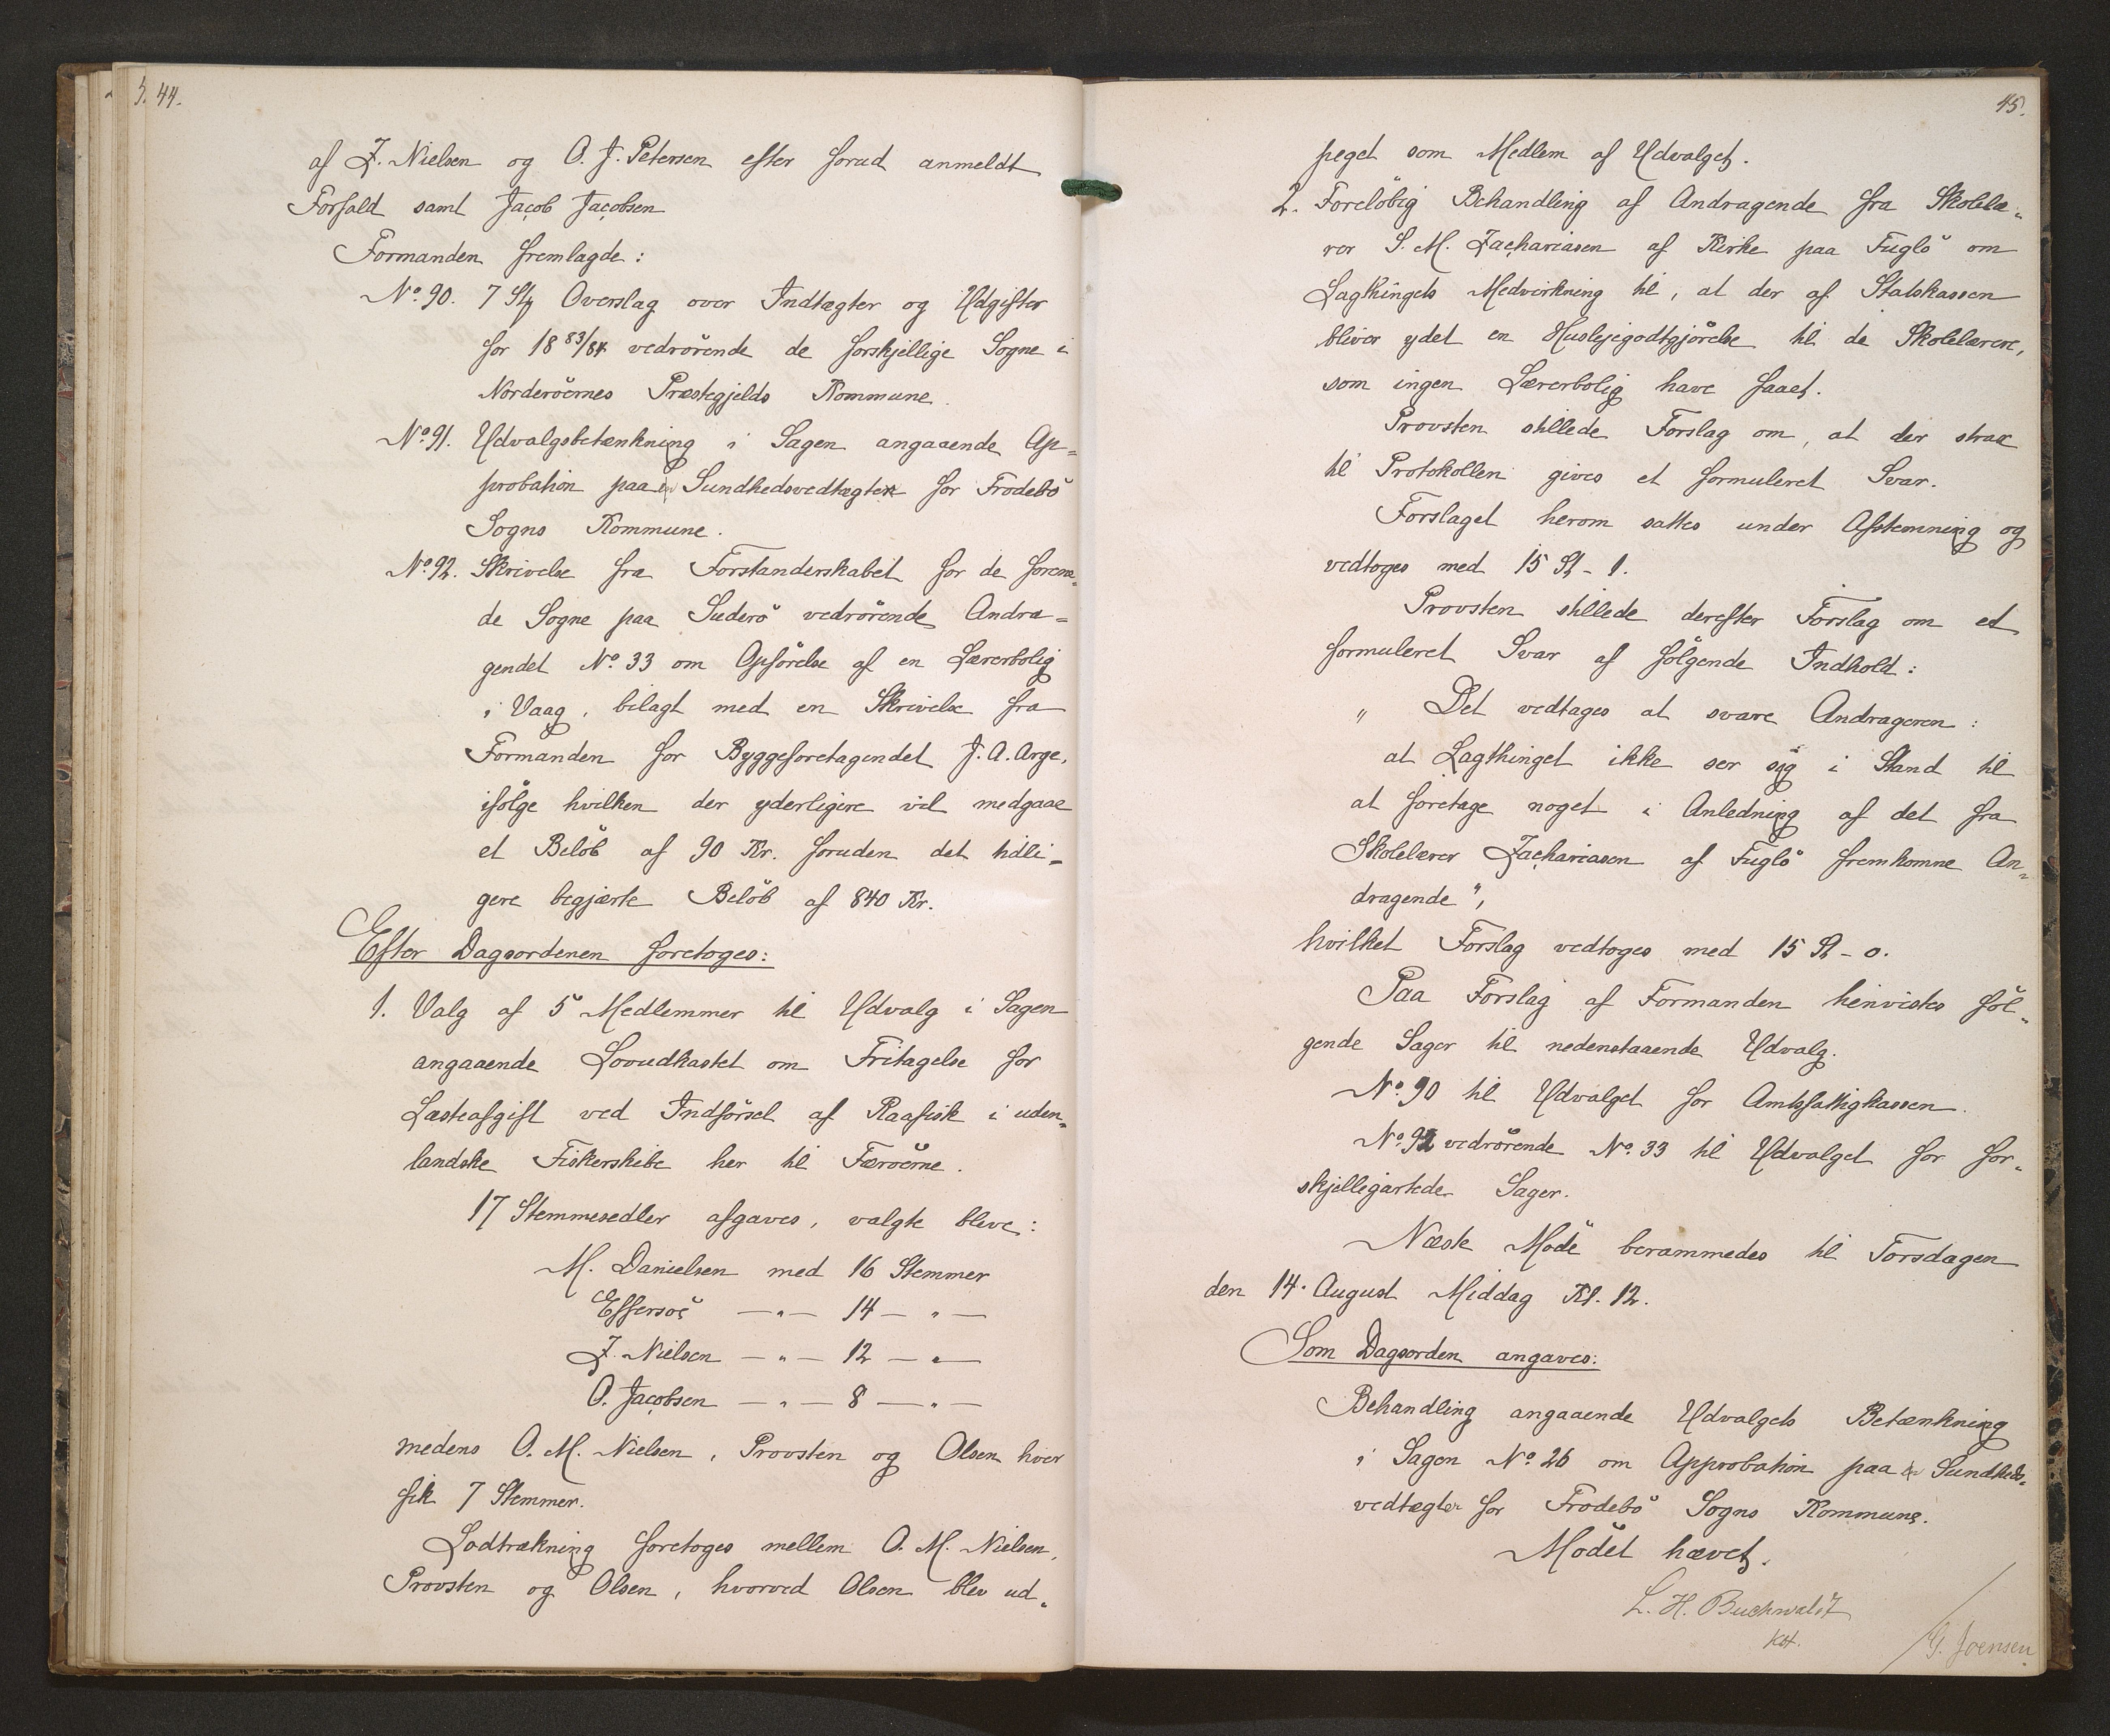 S. 44.
af Z. Nielsen og O. J. Petersen efter forud anmeldt
Forfald samt Jacob Jacobsen
Formanden fremlagde:
No. 90. 7 Stk Overslag over Indtægter og Udgifter
for 18 83/84 vedrörende de forskjellige Sogne i
Norderöernes Præstegjelds Kommune.
No. 91. Udvalgsbetænkning i Sagen angaaende Ap=
probation paa Sundhedsvedtægter for Frodebö
Sogns Kommune.
No. 92. Skrivelse fra Forstanderskabet for de forene=
de Sogne paa Suderö vedrörende Andra=
gendet No. 33 om Opförelse af en Lærerbolig
i Vaag, bilagt med en Skrivelse fra
Formanden for Byggeforetagendet J. A. Arge,
ifölge hvilken der yderligere vil medgaae
et Belöb af 90 Kr. foruden det tidli=
gere begjærte Belöb af 840 Kr.
Efter Dagsordenen foretoges:
1. Valg af 5 Medlemmer til Udvalg i Sagen
angaaende Lovudkastet om Fritagelse for
Lasteafgift ved Indförsel af Raafisk i uden=
landske Fiskerskibe her til Færöerne.
17 Stemmesedler afgaves, valgte bleve:
M. Danielsen med 16 Stemmer
Effersöe — " — 14 — " —
Z. Nielsen — " — 12 — " —
O. Jacobsen — " — 8 — " —
medens O. M. Nielsen, Provsten og Olsen hver
fik 7 Stemmer.
Lodtrækning foretoges mellem O. M. Nielsen,
Provsten og Olsen, hvorved Olsen blev ud=
45.
peget som Medlem af Udvalget.
2. Forelöbig Behandling af Andragende fra Skolelæ=
rer S. M. Zachariasen af Kirke paa Fuglö om
Lagthingets Medvirkning til, at der af Statskassen
bliver ydet en Huslejegodtgjörelse til de Skolelærere,
som ingen Lærerbolig have faaet.
Provsten stillede Forslag om, at der strax
til Protokollen gives et formuleret Svar.
Forslaget herom sattes under Afstemning og
vedtoges med 15 St - 1.
Provsten stillede derefter Forslag om et
formuleret Svar af fölgende Indhold:
" Det vedtages at svare Andrageren:
at Lagthinget ikke ser sig i Stand til
at foretage noget i Anledning af det fra
Skolelærer Zachariasen af Fuglö fremkomne An=
dragende",
hvilket Forslag vedtoges med 15 St - 0.
Paa Forslag af Formanden henvistes föl=
gende Sager til nedenstaaende Udvalg.
No. 90 til Udvalget for Amtsfattigkassen.
No. 92 vedrörende No. 33 til Udvalget for for=
skjelligartede Sager.
Næste Möde berammedes til Torsdagen
den 14. August Middag Kl. 12.
Som Dagsorden angaves:
Behandling angaaende Udvalgets Betænkning
i Sagen No. 26 om Approbation paa Sundheds=
vedtægter for Frodebö Sogns Kommune.
Mödet hævet.
L. H. Buchwaldt
kst.
/ G. Joensen.